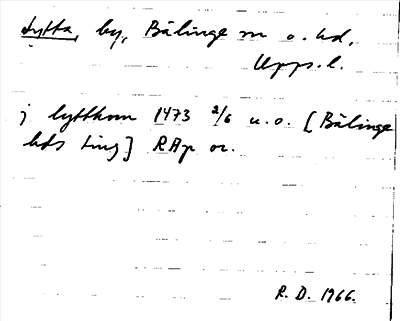 Lytta, by, Bälinge sn o. hd,
Upps. l.
j lytthom 1473 2/6 u.o. [Bälinge
hds ting] RAp or.
R. D. 1966.